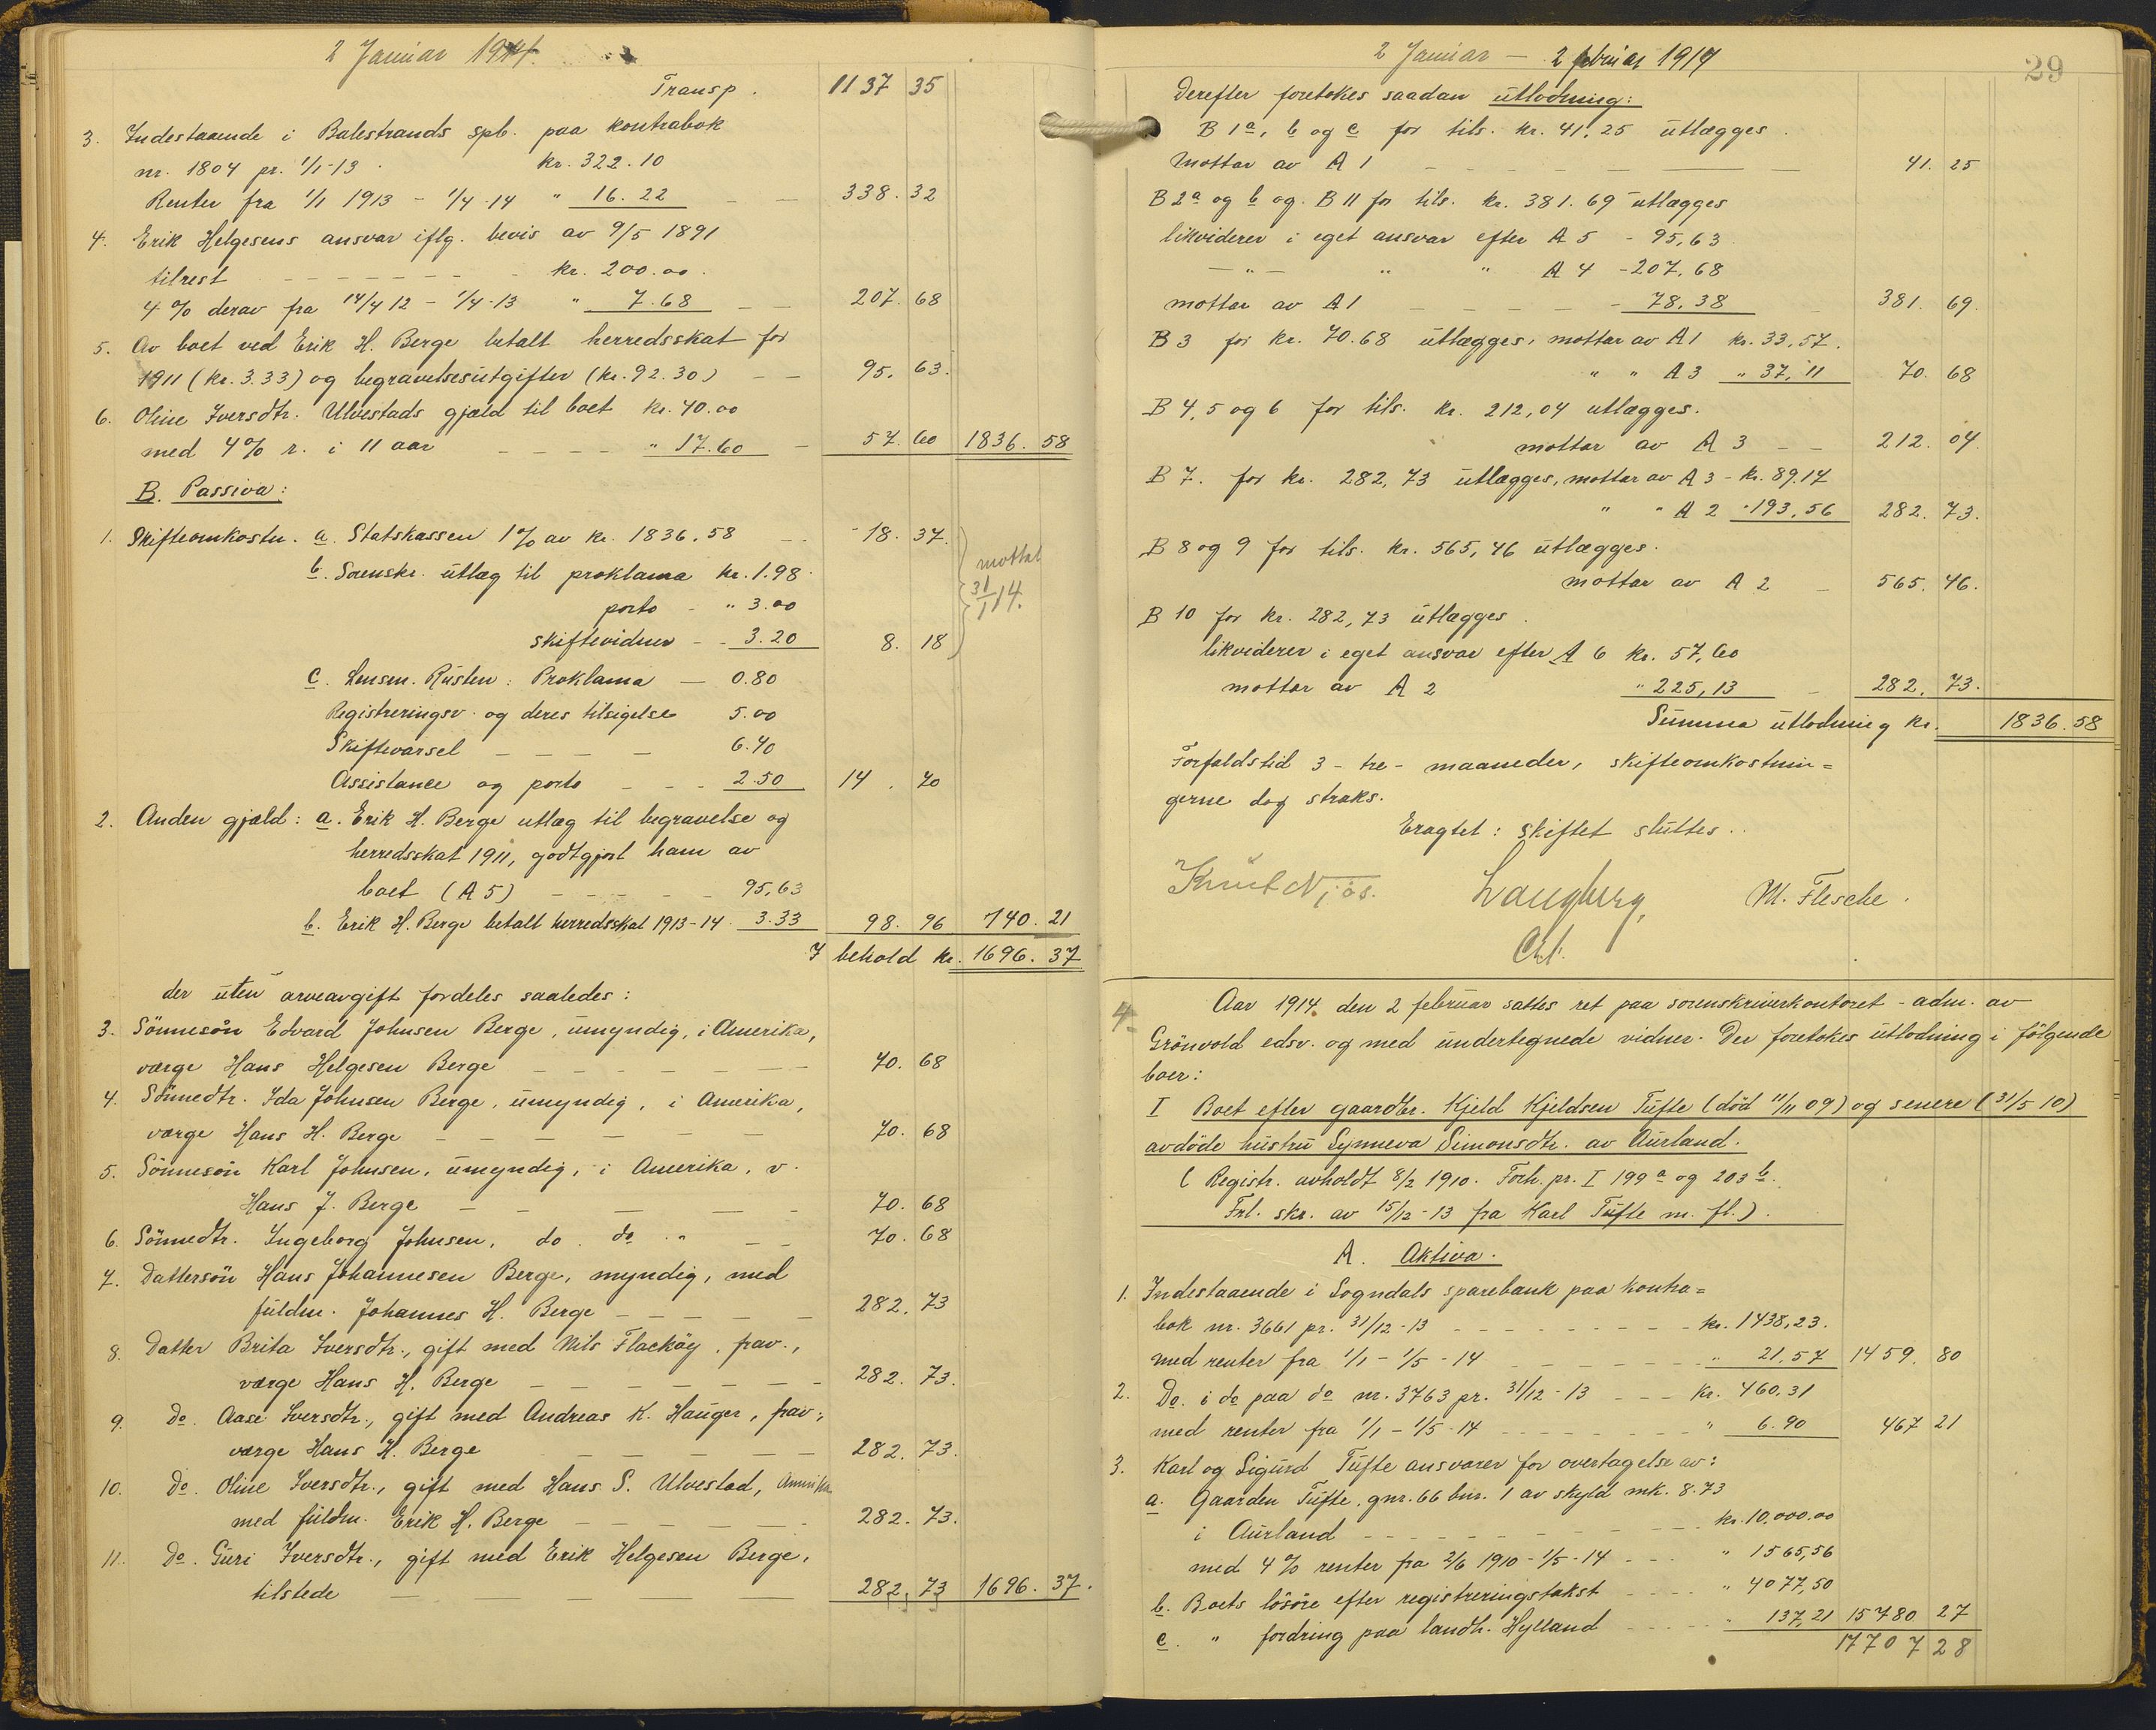 2 Januar 1914.
Transp. 1137 35
3. Indestaaende i Balestrands spb. paa kontrabok
nr. 1804 pr. 1/1-13. kr. 322.10
Renter fra 1/1 1913 - 1/4-14 " 16.22 — — 338. 32
4. Erik Helgesens ansvar iflg. bevis av 9/5 1891
tilrest - - - - - - - kr. 200.00.
4% derav fra 14/4 12 - 1/4-13 " 7.68 — — 207. 68
5. Av boet ved Erik H. Berge betalt herredsskat for
1911 (kr. 3.33) og begravelsesutgifter (kr. 92.30) — — 95. 63.
6. Oline Iversdtr. Ulvestads gjæld til boet kr. 40.00
med 4% r. i 11 aar - - - - " 17.60 — 57. 60 1836. 58
B. Passiva:
1. Skifteomkostn. a. Statskassen 1% av kr. 1836.58 - - - 18. 37.
b. Sorenskr. utlæg til proklama kr. 1.98.
mottat
porto - " 3.00
31/1 14.
skiftevidner - - 3.20 8. 18
c. Lensm. Rusten: Proklama — 0.80
Registreringsv. og deres tilsigelse 5.00
Skiftevarsel — — — — 6.40
Assistance og porto - - - 2.50 14. 70
2. Anden gjæld: a. Erik H. Berge utlæg til begravelse og
herredsskat 1911, godtgjort ham av
boet (A 5) — — — — — 95,63
b. Erik H. Berge betalt herredsskat 1913-14. 3.33 98. 96 140. 21
I behold kr. 1696. 37
der uten arveavgift fordeles saaledes:
3. Sönnesön Edvard Johnsen Berge, umyndig, i Amerika,
værge Hans Helgesen Berge — — — — — — — 70. 68
4. Sönnedtr. Ida Johnsen Berge, umyndig, i Amerika,
værge Hans H. Berge — — — — — — — 70. 68
5. Sönnesön Karl Johnsen, umyndig, i Amerika, v.
Hans J. Berge — — — — — — 70. 68
6. Sönnedtr. Ingeborg Johnsen, do. do. " — — 70. 68
7. Dattersön Hans Johannesen Berge, myndig, med
fuldm. Johannes H. Berge — — — — — 282. 73
8. Datter Brita Iversdtr., gift med Nils Flacköy, frav.,
værge Hans H. Berge — — — — — — — 282. 73.
9. Do. Aase Iversdtr., gift med Andreas K. Hauger, frav.,
værge Hans H. Berge — — — — — — 282. 73.
10. Do. Oline Iversdtr., gift med Hans S. Ulvestad, Amerika
med fuldm. Erik H. Berge — — — — — — 282. 73.
11. Do. Guri Iversdtr., gift med Erik Helgesen Berge,
tilstede — — — — — — — 282. 73 1696. 37.
2 Januar — 2 februar 1914
29
Derefter foretokes saadan utlodning:
B 1a, b og c for tils. kr. 41.25 utlægges.
Mottar av A 1 - - - - - — — 41. 25
B 2a og b og B 11 for tils. kr. 381.69 utlægges
likviderer i eget ansvar efter A 5 - 95,63.
— " — " " A 4 - 207,68
mottar av A 1 — — — — — - 78,38 381. 69.
B 3 for kr. 70.68 utlægges, mottar av A 1 kr. 33,57.
" " A 3 " 37,11 70. 68
B 4, 5 og 6 for tils. kr. 212,04 utlægges.
mottar av A 3 — — 212. 04.
B 7. for kr. 282,73 utlægges, mottar av A 3 - kr. 89.17
" " A 2 " 193,56 282. 73.
B 8 og 9 for tils. kr. 565,46 utlægges.
mottar av A 2 — 565. 46.
B 10 for kr. 282,73 utlægges.
likviderer i eget ansvar efter A 6 kr. 57,60
mottar av A 2 " 225,13 — 282. 73.
Summa utlodning kr. 1836. 58
Forfaldstid 3 - tre - maaneder, skifteomkostnin=
gerne dog straks.
Eragtet: Skiftet sluttes.
Knut Njös. Langberg, M. Flesche.
Cst.
4. Aar 1914. den 2 februar sattes ret paa sorenskriverkontoret - adm. av
Grönvold edsv. og med undertegnede vidner. Der foretokes utlodning i fölgende
boer:
I Boet efter gaardbr. Kjeld Kjeldsen Tufte (död 11/11 09) og senere (31/5 10)
avdöde hustru Synneva Simonsdtr. av Aurland.
(Registr. avholdt 8/2 1910. Forh. pr. I 199a og 203b.
Frl. skr. av 15/12-13 fra Karl Tufte m. fl.).
A. Aktiva.
1. Indestaaende i Sogndals sparebank paa kontra=
bok nr. 3661 pr. 31/12-13 - - - - - - - - - kr. 1438,23.
med renter fra 1/1 - 1/5-14 - - - - - - - " 21,57 1459. 80
2. Do. i do paa do nr. 3763 pr. 31/12-13 - - - kr. 460,31
med renter fra 1/1 - 1/5-14 - - - - - - - " 6.90 467 21
3. Karl og Sigurd Tufte ansvarer for overtagelse av:
a. Gaarden Tufte, gnr. 66 bnr. 1 av skyld mk. 8.73
i Aurland - - - - - - - - - - - kr. 10,000.00
med 4% renter fra 2/6 1910 - 1/5-14 - - - " 1565,56
b. Boets lösöre efter registreringstakst - - - - " 4077,50
c. " fordring paa landh. Hylland - - - - - " 137,21 15780 27
17707 28